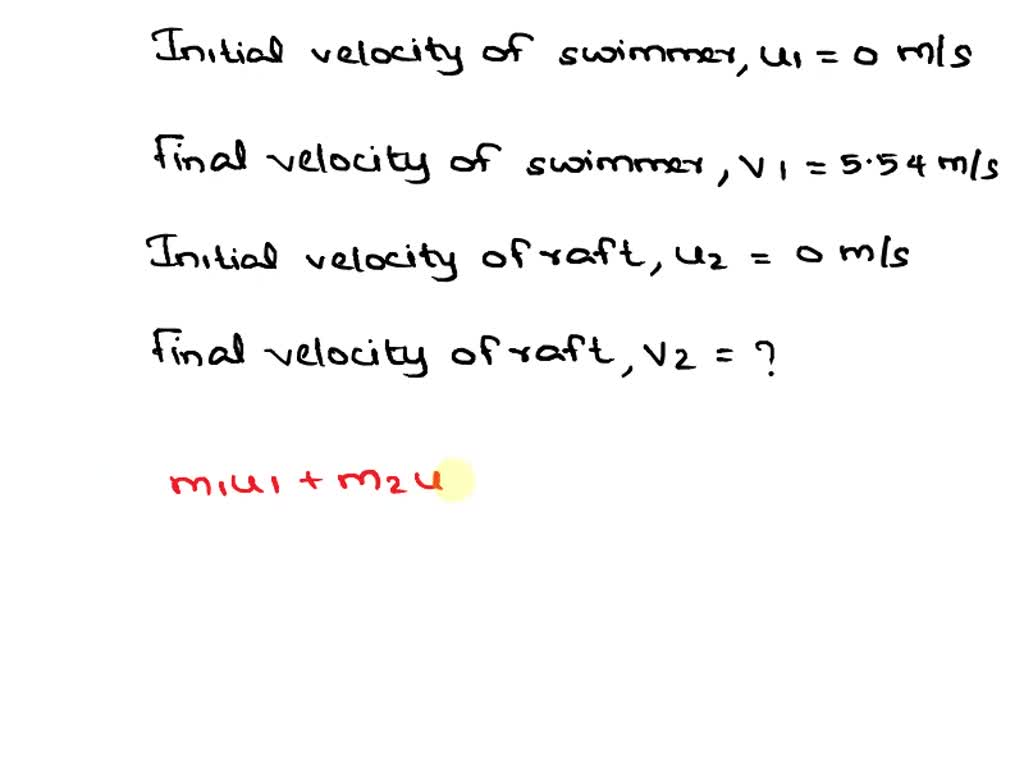 Initial velocity of swimmer, u1 = 0 m/s
Final velocity of swimmer, v1 = 5.54 m/s
Initial velocity of raft, u2 = 0 m/s
Final velocity of raft, v2 = ?
m1u1 + m2u